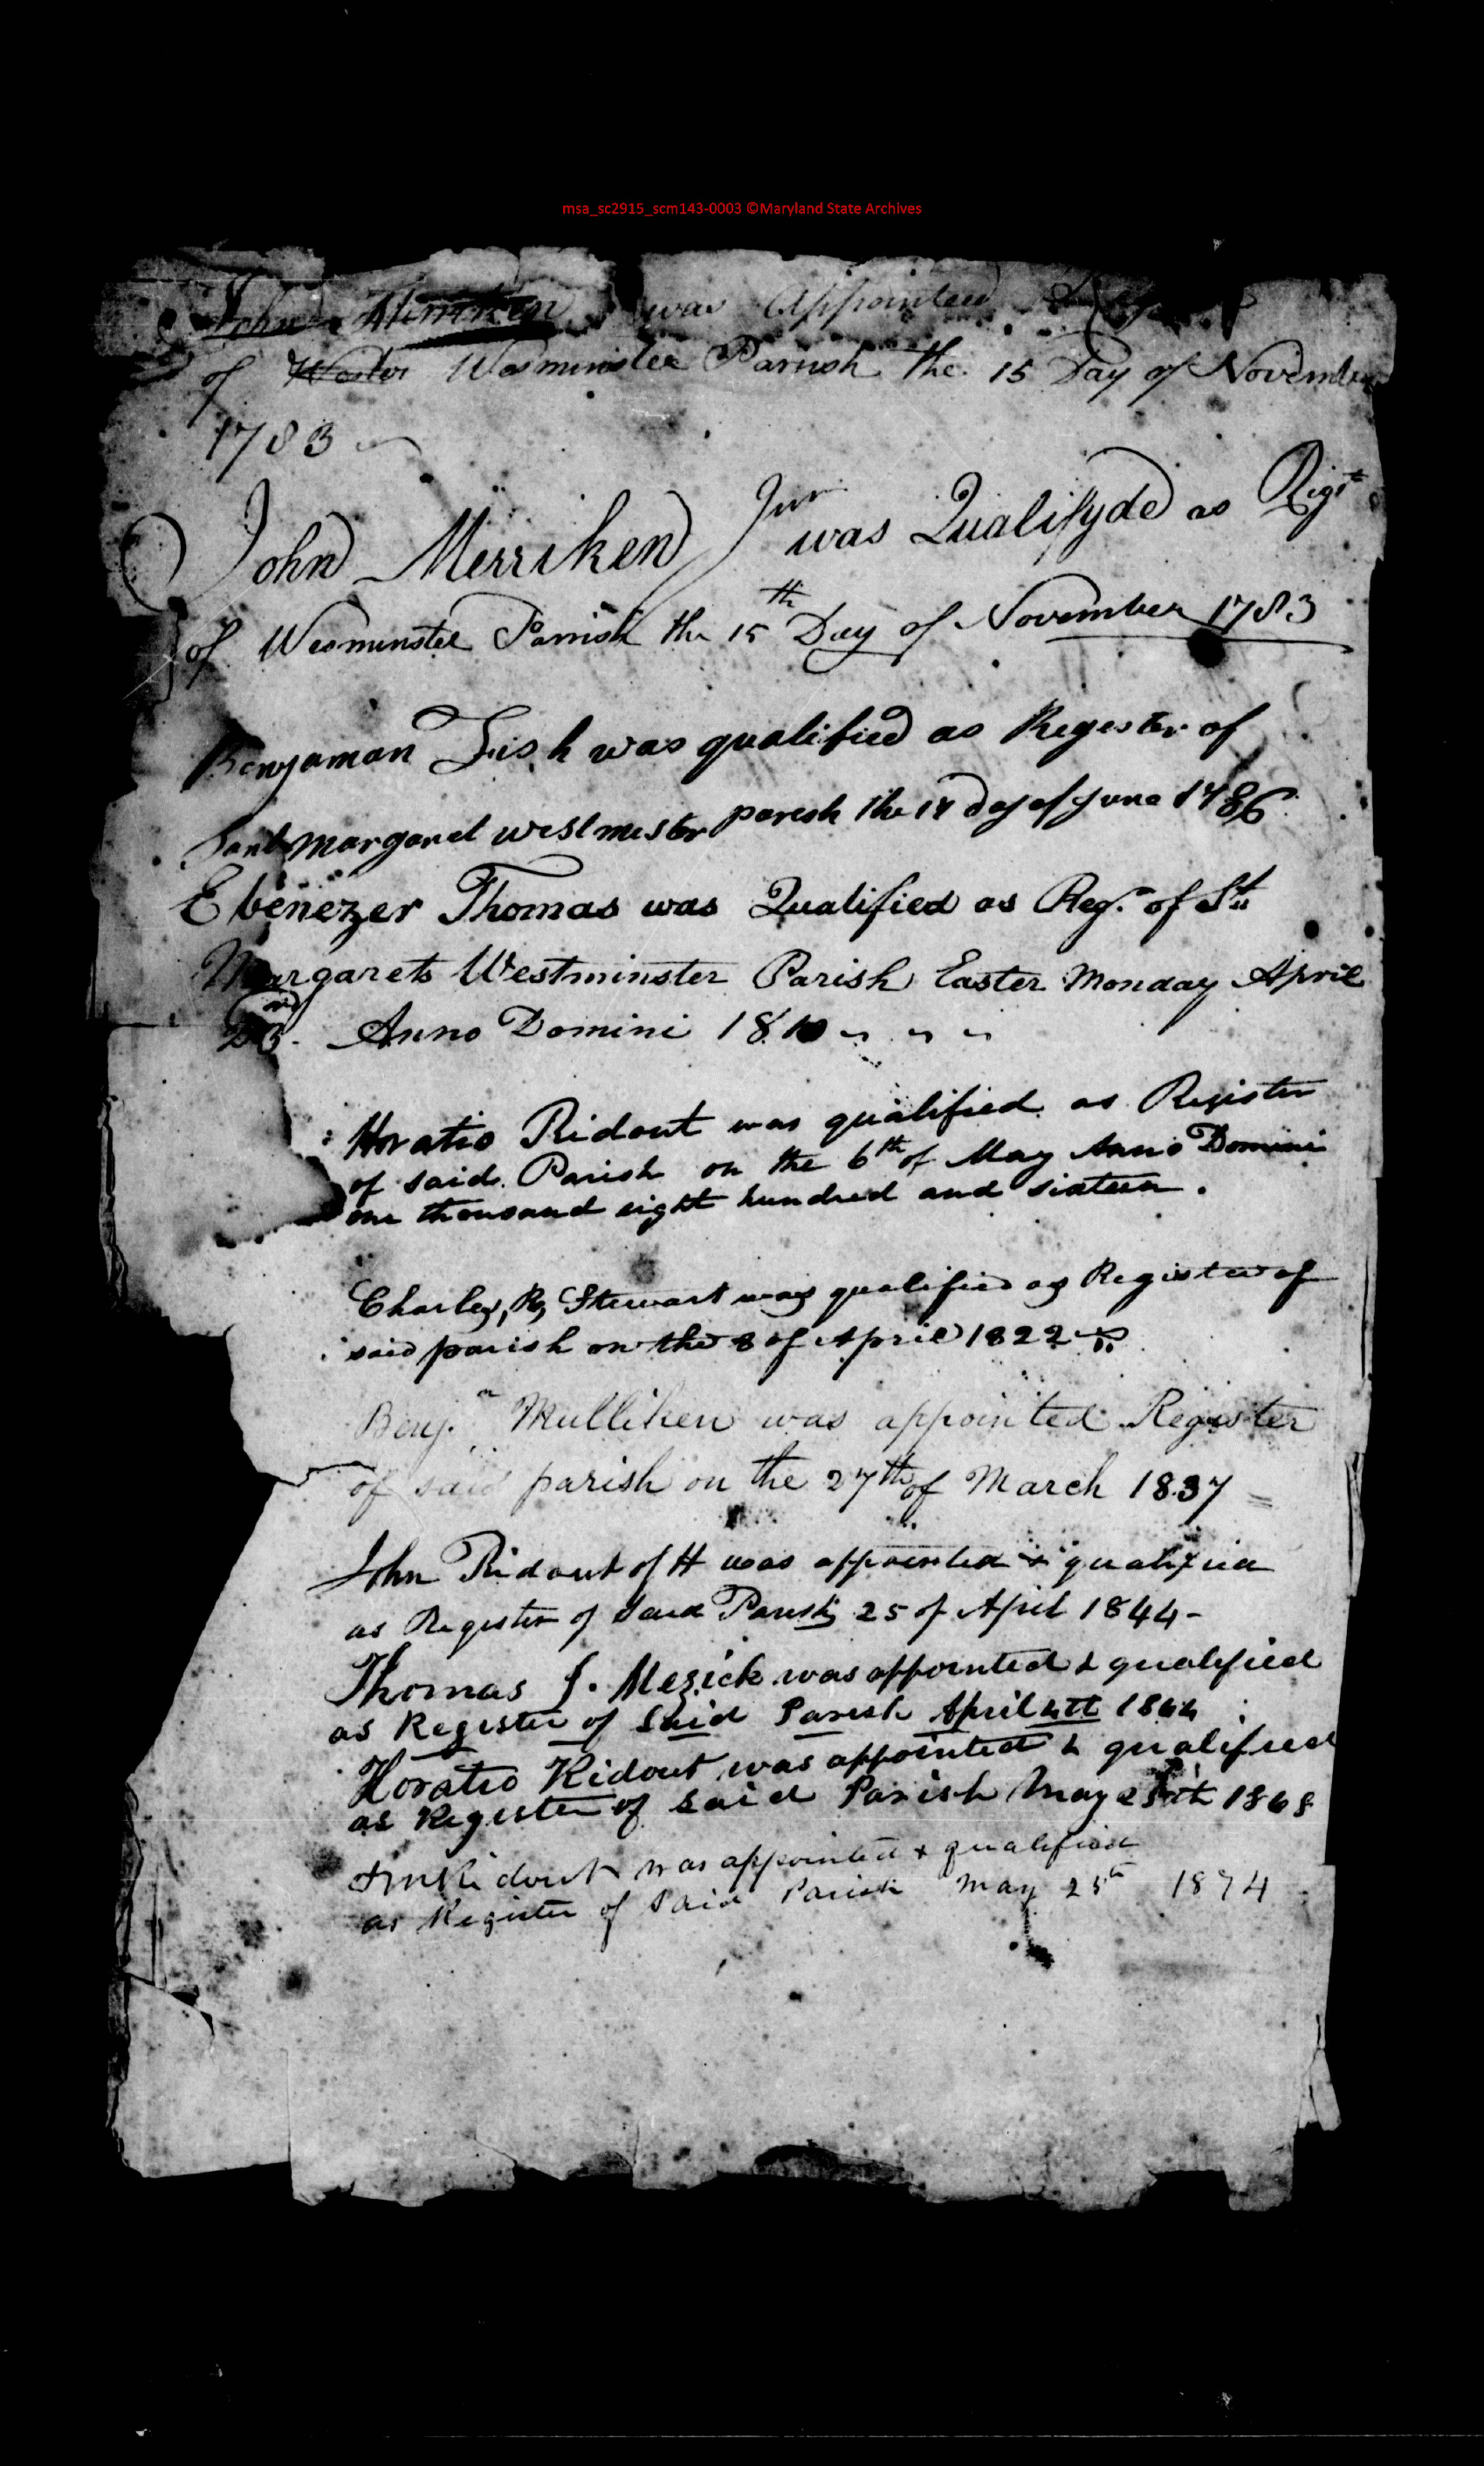 msa_sc2915_scm143-0003 ©Maryland State Archives
John Merriken was Appointed
of Wester Wesminster Parrish the 15 Day of November
1783
John Merriken Junr was Qualifyde as Regr
of Wesminster Parrish the 15th Day of November 1783
Benjaman Fish was qualified as Regester of
Sant Margaret westmester paresh the 14 day of June 1786
Ebenezer Thomas was Qualified as Reg. of St
Margarets Westminster Parish Easter Monday April
23rd Anno Domini 1810
Horatio Ridout was qualified as Register
of said Parish on the 6th of May Anno Domini
one thousand eight hundred and sixteen.
Charles, R, Stewart was qualified as Register of
said parish on the 8 of April 1822
Benjn Mulliken was appointed Register
of said parish on the 27th of March 1837
John Ridout of H was appointed & qualified
as Register of Said Parish 25 of April 1844-
Thomas J. Mezick was appointed & qualified
as Register of Said Parish April 4th 1864
Horatio Ridout was appointed & qualified
as Register of Said Parish May 25th 1868
Ridout was appointed & qualified
as Register of Said Parish May 25th 1874